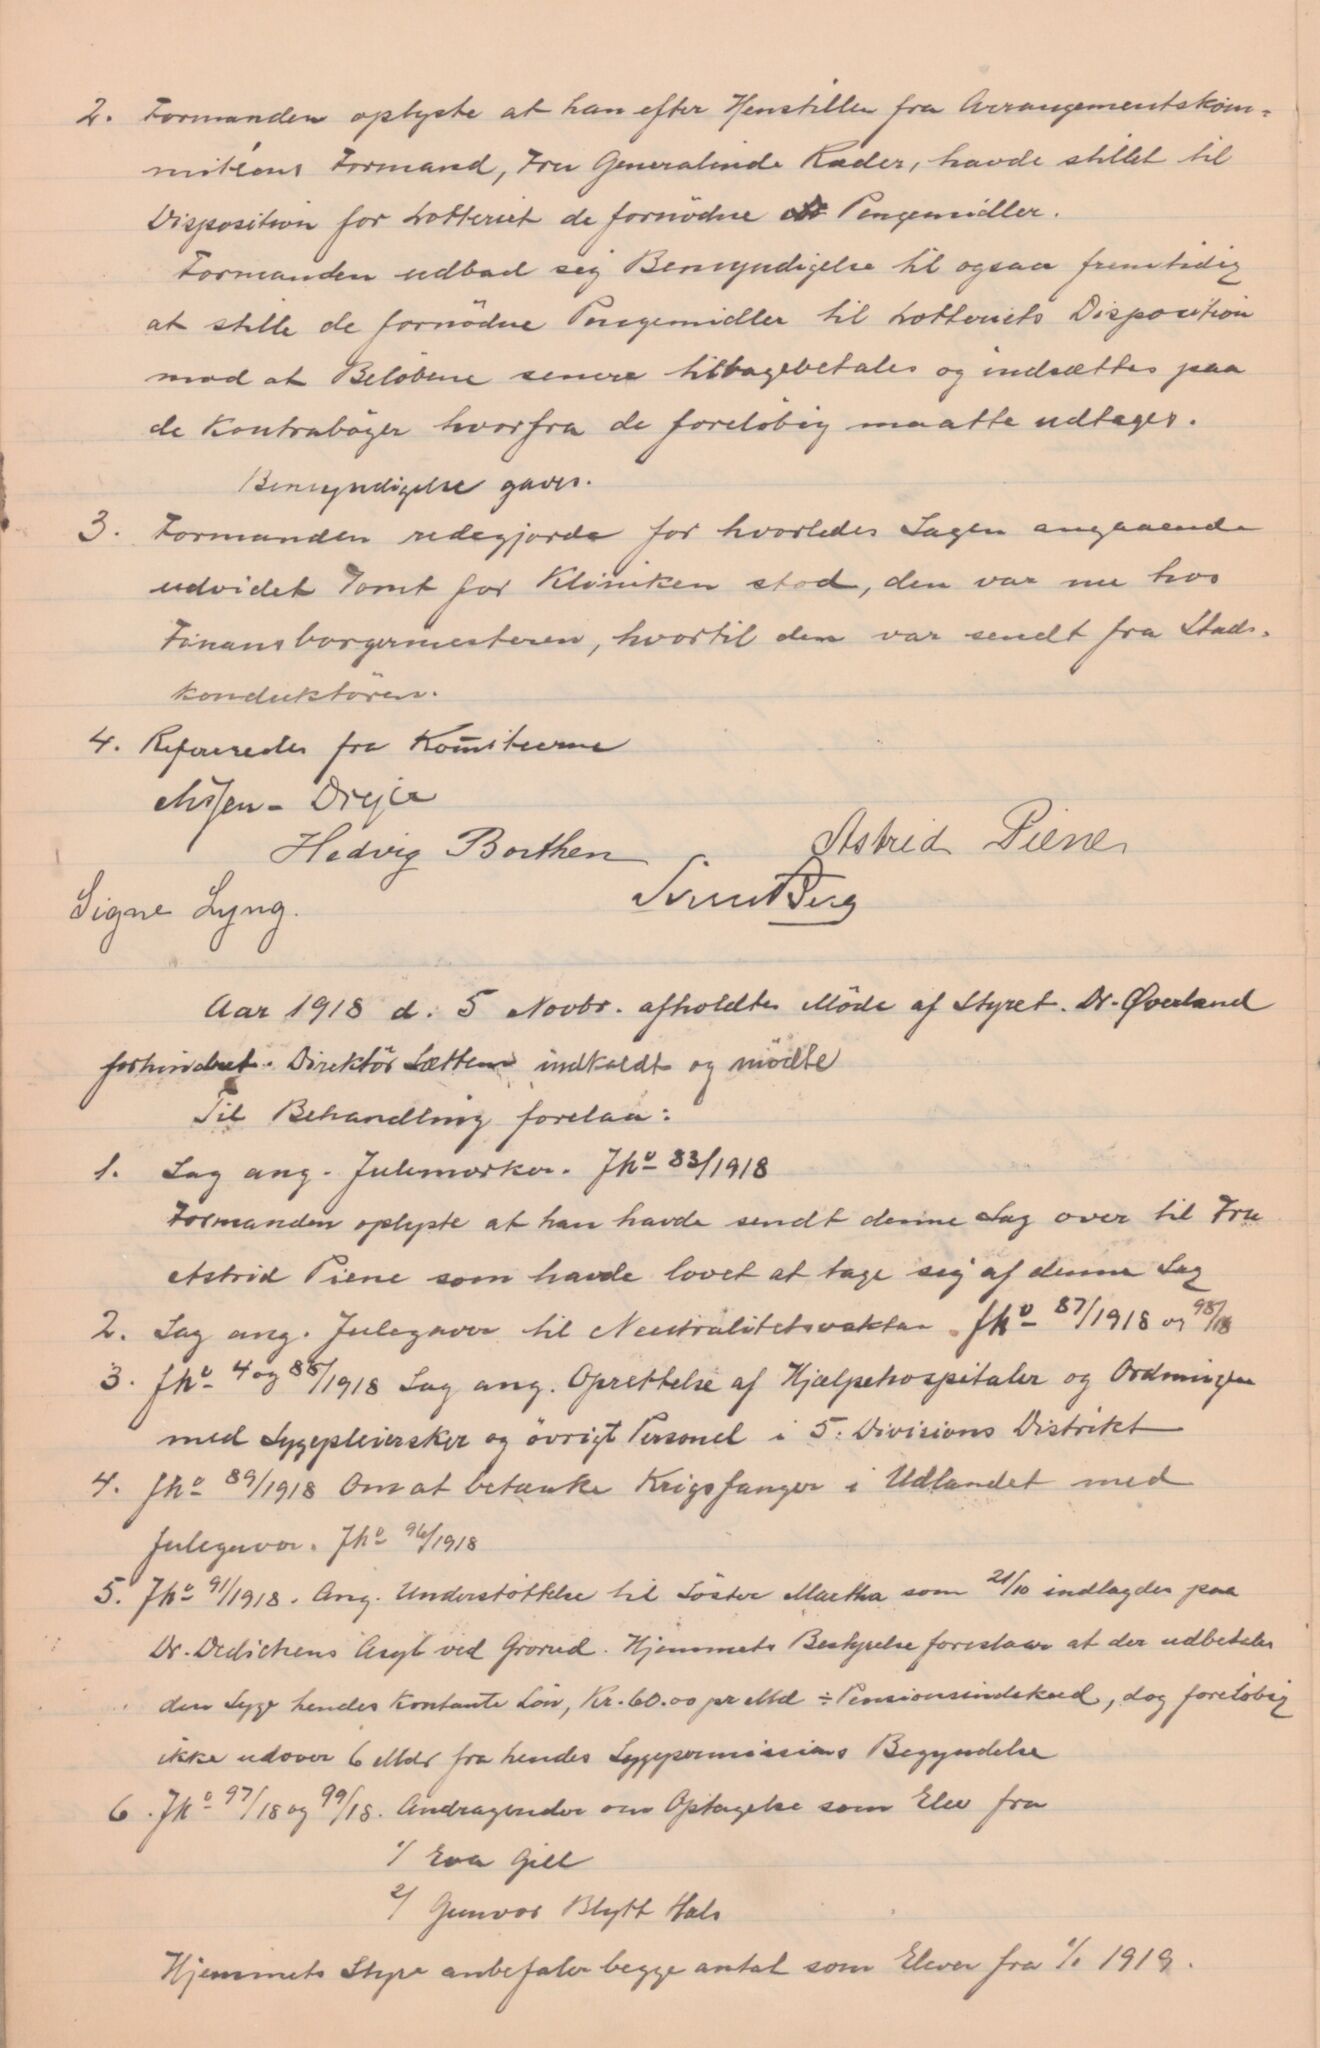 2. Formanden oplyste at han efter Henstillen fra Arrangementskom-
miteens Formand, Fru Generalinde Ræder, havde stillet til
Disposition for Lotteriet de fornødne Pengemidler.
Formanden udbad sig Bemyndigelse til ogsaa fremtidig
at stille de fornödne Pengemidler til Lotteriets Disposition
mod at Belöbene senere tilbagebetales og indsættes paa
de Kontraböger hvorfra de foreløbig maatte udtages.
Bemyndigelse gaves.
3. Formanden redegjorde for hvorledes Sagen angaaende
udvidet Tomt for Kliniken stod, den var nu hos
Finansborgermesteren, hvortil den var sendt fra Stads-
konduktören.
4. Refereredes fra Komiteerne
Dreje
Hedvig Borthen Astrid Piene
Signe Lyng. Berg
Aar 1918 d. 5 Novbr. afholdtes Möde af Styret. Dr. Øverland
forhindret. Direktör Sættem indkaldt og mödte
Til Behandling forelaa:
1. Sag ang. Julemerker. Jno 83/1918
Formanden oplyste at han havde sendt denne Sag over til Fru
Astrid Piene som havde lovet at tage sig af denne Sag
2. Sag ang. Julegaver til Neutralitetsvakten. Jno 87/1918 og 98/18
3. Jno 4 og 88/1918 Sag ang. Oprettelse af Hjælpehospitaler og Ordningen
med Sygepleiersker og övrigt Personel i 5. Divisions Distrikt
4. Jno 89/1918 Om at betænke Krigsfanger i Udlandet med
Julegaver. Jno 96/1918
5. Jno 91/1918. Ang. Understöttelse til Söster Martha som 21/10 indlagdes paa
Dr. Dedichens Asyl ved Grorud. Hjemmets Bestyrelse foreslaar at der udbetales
den Syge hendes Kontante Lön, Kr. 60.00 pr Md ÷ Pensionsindskud, dog foreløbig
ikke udover 6 Mdr fra hendes Sygepermissions Begyndelse
6. Jno 97/18 og 99/18. Andragender om Optagelse som Elev fra
1/ Eva Gill
2/ Gunvor Blytt Hals
Hjemmets Styre anbefaler begge antat som Elever fra 1/1 1919.